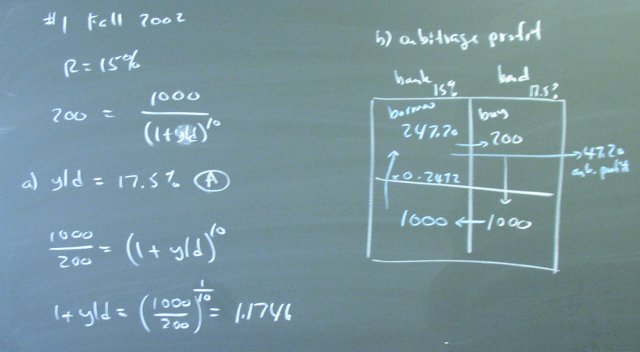 #1 Fall 2002
R = 15%
200 = 1000 / (1+yld)^10
a) yld = 17.5% (A)
1000/200 = (1 + yld)^10
1 + yld = (1000/200)^(1/10) = 1.1746
b) arbitrage profit
bank 15% bond 17.5%
borrow buy
247.20 → 200 → 47.20
arb. profit
x 0.2472
1000 ← 1000